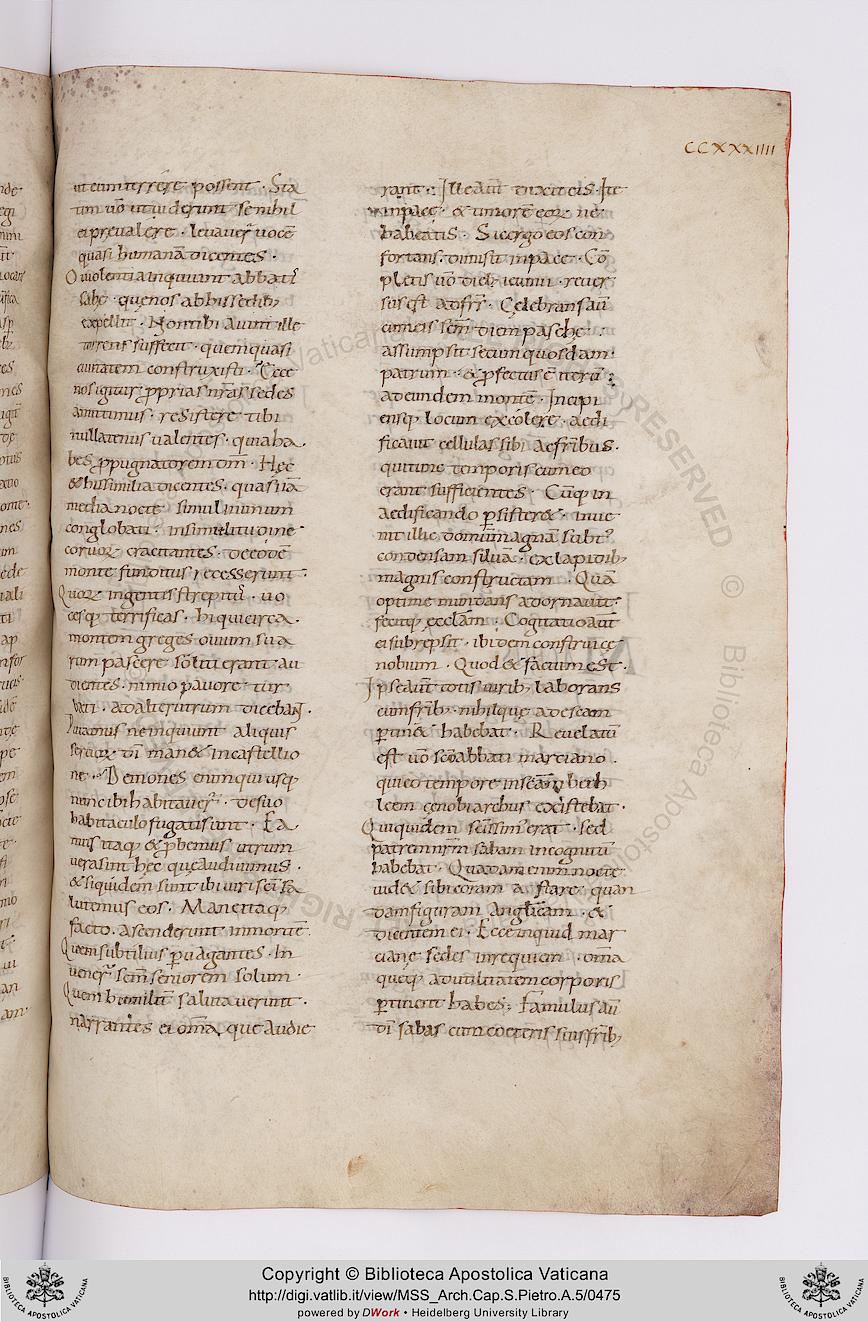 CCXXXIIII
ut eum terrere possent . Sta
tim uõ ut uiderunt se nihil
ei preualere . leuauer̃ uocẽ
quasi humanã dicentes .
O uiolentia inquiunt abbatis
sabę . quę nos ab his sedib;
expellit . Non tibi auiti ille
torrens suffecit . quem quasi
ciuitatem construxisti . Ecce
nos igitur ꝓprias nr̃as sedes
amittimus . resistere tibi
nullatenus ualentes . quia ha
bes ꝓpugnatorem dm̃ . Hęc
& his similia dicentes . quasi iã
media nocte simul in unum
conglobati . in similitudine
coruorũ cracitantes . de eodẽ
monte funditus recesserunt .
Quorũ ingentes strepitus . uo
cesq; terrificas . hi qui circa
montem greges ouium sua
rum pascere soliti erant au
dientes . nimio pauore tur
bati . ad alterutrum dicebant .
Putamus ne inquiunt aliquis
seruorũ dĩ manet in castellio
ne . Demones enim qui usq;
nunc ibi habitauer̃ . de suo
habitaculo fugati sunt . Ea
mus itaq; & ꝓbemus utrum
uera sint hęc quę audiuimus .
& siquidem sunt ibi uiri sc̃i sa
lutemus eos . Mane itaq;
facto . ascenderunt in montẽ .
Quem subtilius ꝑuagantes . in
uener̃ sc̃m seniorem solum .
Quem humilit̃ salutauerunt .
narrantes ei om̃a que audie
rant . Ille aut̃ dixit eis . Ite
in pace . & timorẽ eorũ ne
habeatis . Sic ergo eos con
fortans . dimisit in pace . Cõ
pletis uõ dieb; ieiunii . reuer
sus est ad fr̃s . Celebrans aũ
cum eis sc̃m diem paschę .
assumpsit secum quosdam
patrum . & ꝓfectus ẽ iterũ
ad eundem montẽ . Incipi
ensq; locum excolere . aedi
ficauit cellulas sibi ac fr̃ibus .
qui tunc temporis cum eo
erant sufficientes . Cũq; in
aedificando ꝑsisteret . inue
nit illic domum magnã subt᷒
condensam siluã . ex lapidib;
magnis constructam . Quã
optime mundans adornauit .
fecitq; ecclam . Cogitatio aut̃
ei subrepsit . ibidem construi ce
nobium . Quod & factum est .
Ipse aut̃ totis uirib; laborans
cum fr̃ib; . nihil quę ad escam
ꝑtinet habebat . Reuelatũ
est uõ sc̃o abbati marciano .
qui eo tempore in sc̃am beth
leem cenobiarchus existebat .
Qui quidem sc̃issim᷒ erat . sed
patrem nr̃m sabam incognitũ
habebat . Quadam enim nocte
uidet sibi coram astare quan
dam figuram anglicam . &
dicentem ei . Ecce inquid mar
ciane sedes in requiem . om̃a
quęq; ad utilitatem corporis
ꝑtinent habes ; Famulus aũ
dĩ sabas cum coeteris suis fr̃ib;
Copyright © Biblioteca Apostolica Vaticana
http://digi.vatlib.it/view/MSS_Arch.Cap.S.Pietro.A.5/0475
powered by DWork • Heidelberg University Library